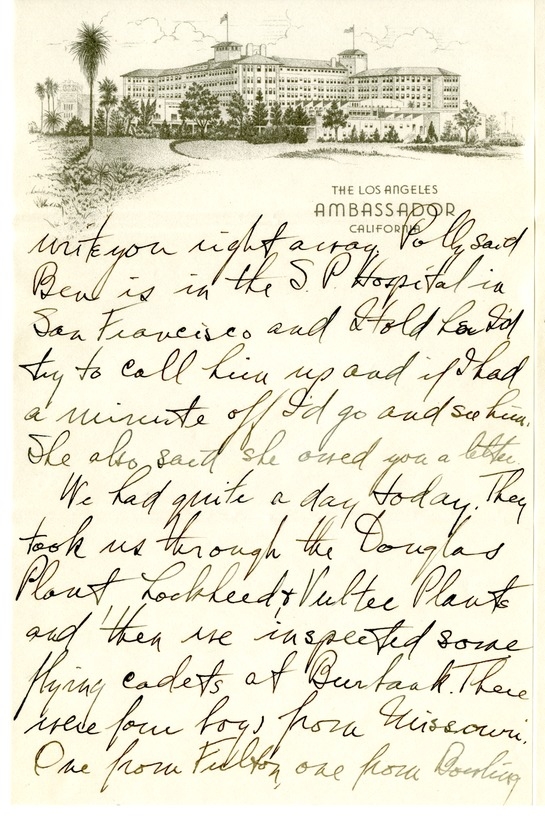 THE LOS ANGELES
AMBASSADOR
CALIFORNIA
write you right away. Polly said
Ben is in the S.P. Hospital in
San Francisco and I told her I'd
try to call him up and if I had
a minute off I'd go and see him.
She also said she owed you a letter.
We had quite a day today. They
took us through the Douglas
Plant, Lockheed & Vultee Plants
and then we inspected some
flying cadets at Burbank. There
were four boys from Missouri.
One from Fulton, one from Bowling